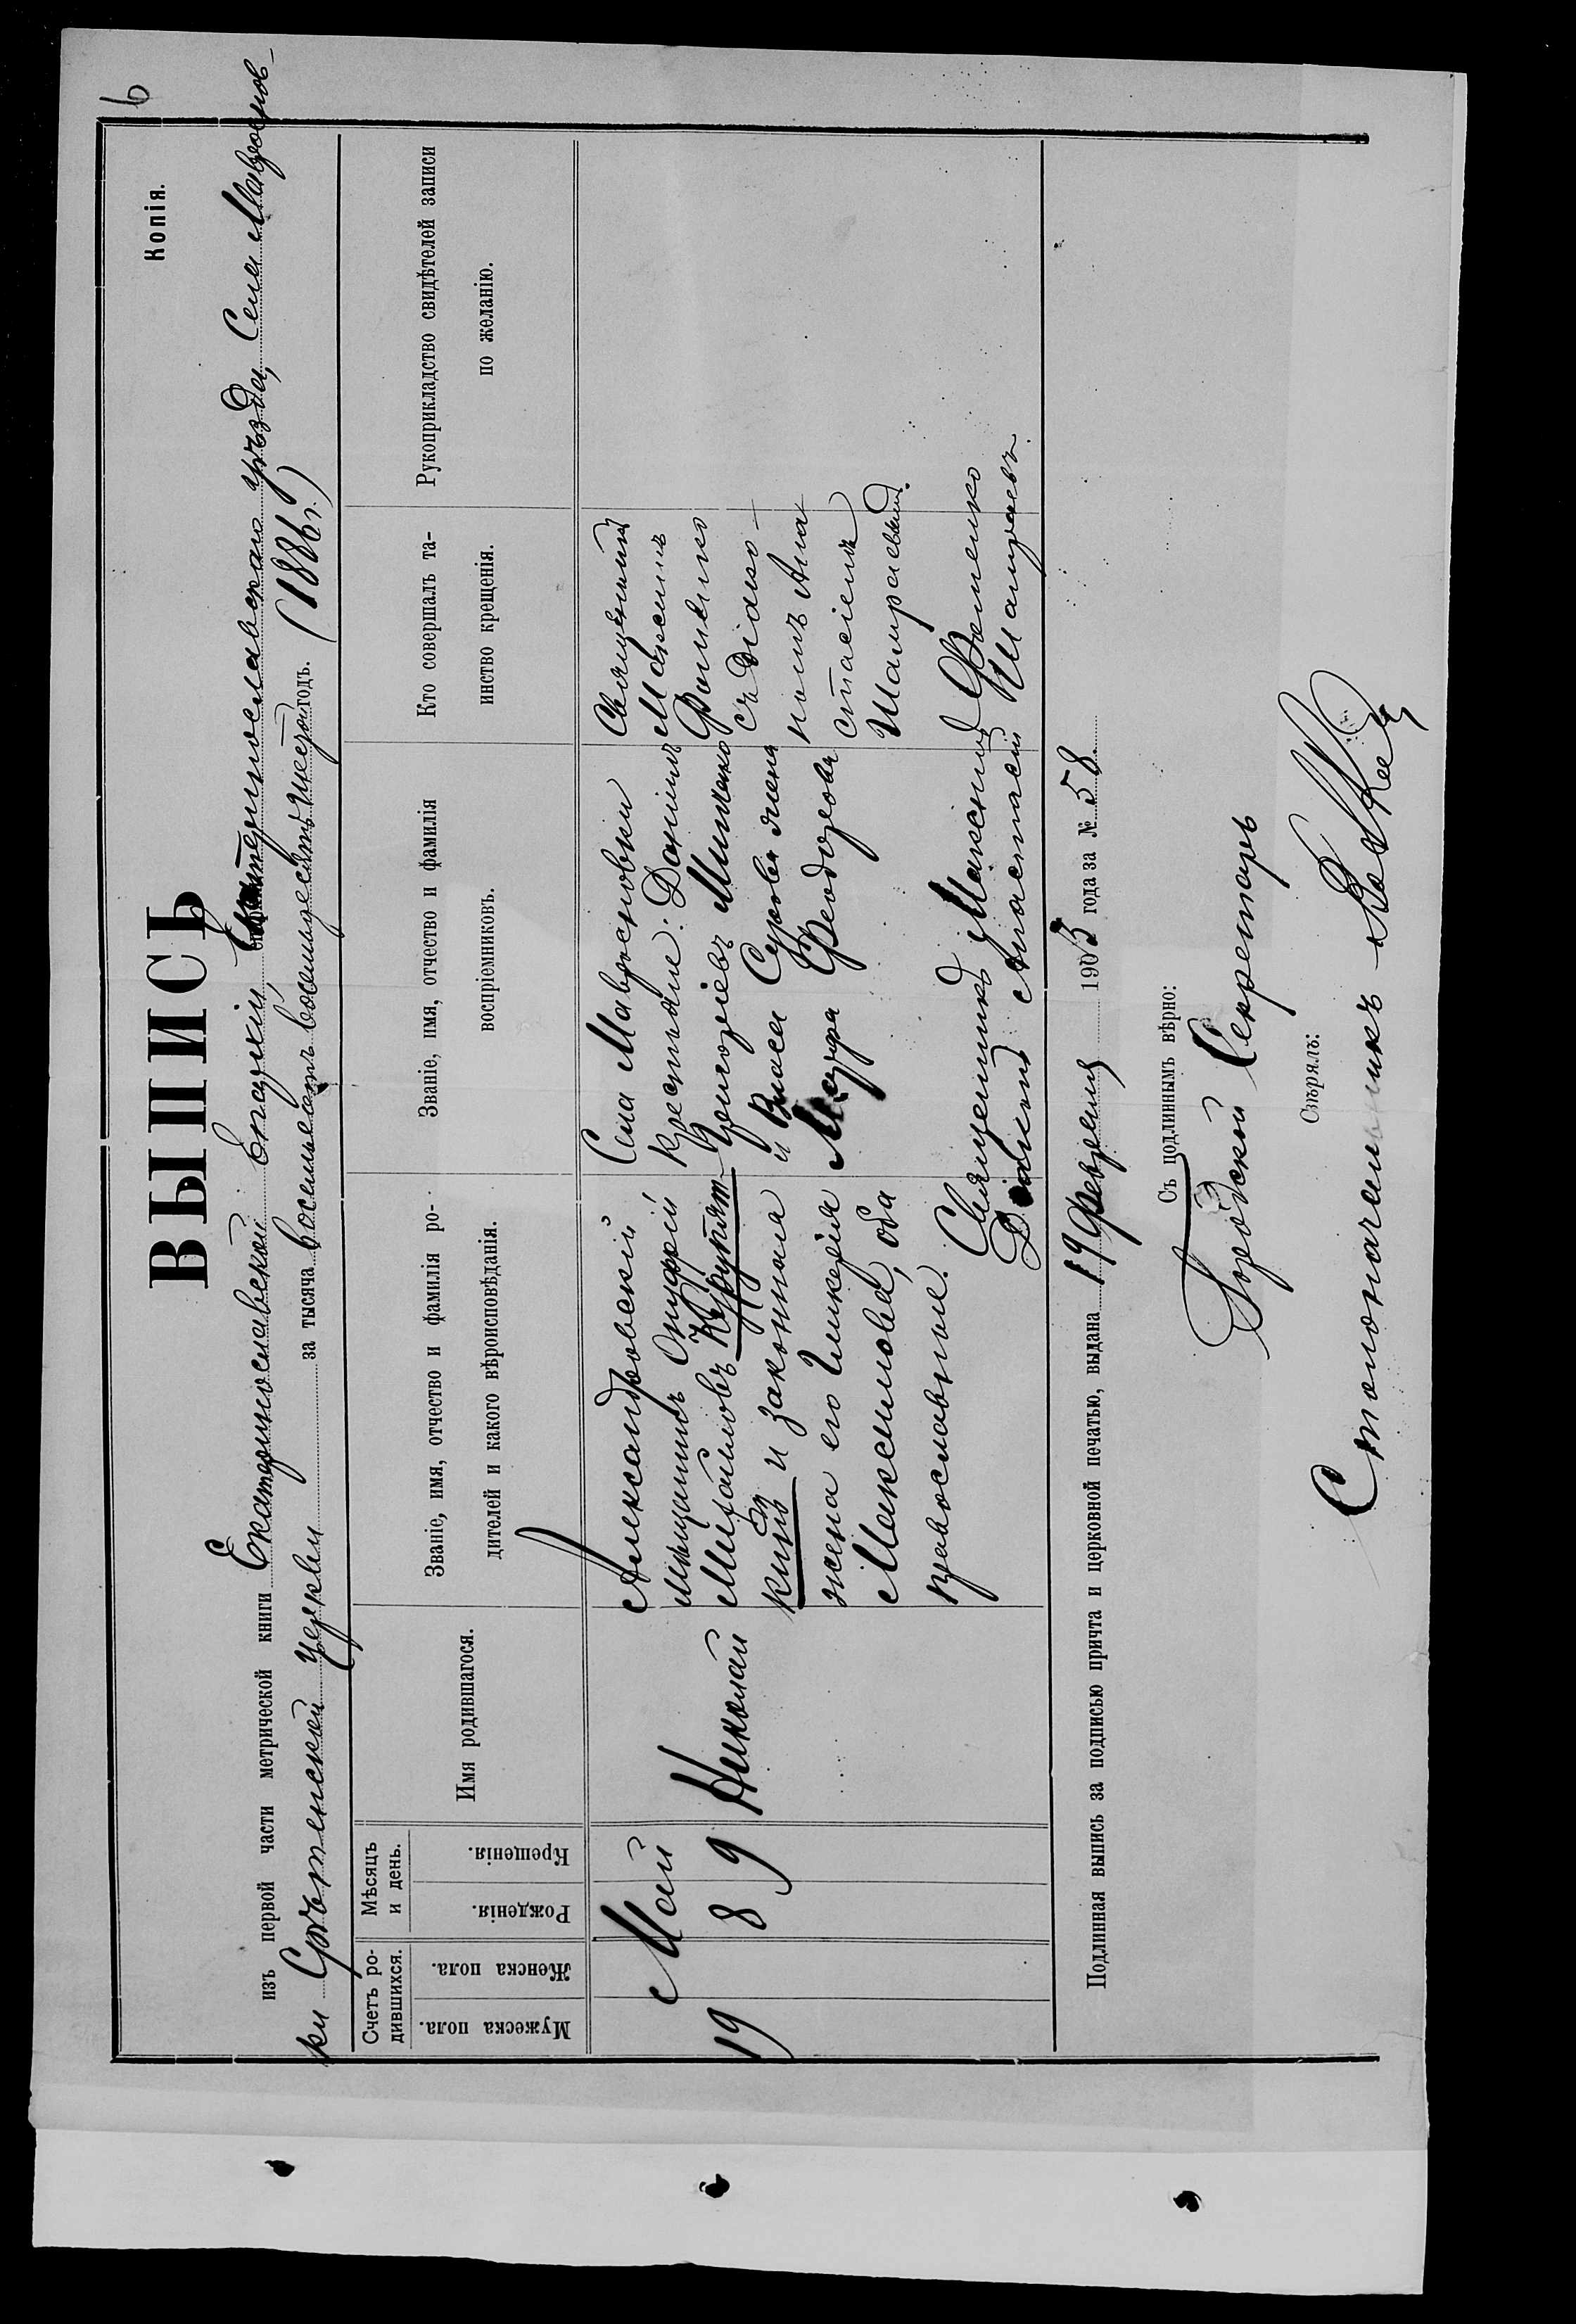 6
Копія.
ВЫПИСЬ
изъ первой части метрической книги Екатеринославской Епархіи, Екатеринославскаго уѣзда, Села Мавринов-
ки Срѣтенской церкви за тысяча восемьсотъ восемьдесятъ шестой годъ. (1886 г.)
Счетъ ро-
дившихся.
Мужеска пола.
Женска пола.
Мѣсяцъ
и день.
Рожденія.
Крещенія.
Имя родившагося.
Званіе, имя, отчество и фамилія ро-
дителей и какого вѣроисповѣданія.
Званіе, имя, отчество и фамилія
воспріемниковъ.
Кто совершалъ та-
инство крещенія.
Рукоприкладство свидѣтелей записи
по желанію.
19
Май
8
9
Николай
Александровскій
мѣщанинъ Онуфрій
Михайловъ Курпят-
кинъ и законная
жена его Гликерія
Максимова, оба
православные.
Села Мавриновки
крестьяне: Даніилъ
Григоріевъ Минько
и Власа Сурова жена
Марфа Феодорова
Священникъ
Максимъ
Фоменко
съ діако-
номъ Ана
стасіемъ
Шамраевымъ.
Священникъ Максимъ Фоменко
Діаконъ Анастасій Шамраевъ.
Подлинная выпись за подписью причта и церковной печатью, выдана 19 февраля 1903 года за № 58.
Съ подлиннымъ вѣрно:
Городской Секретарь
Свѣрялъ:
Столоначальникъ